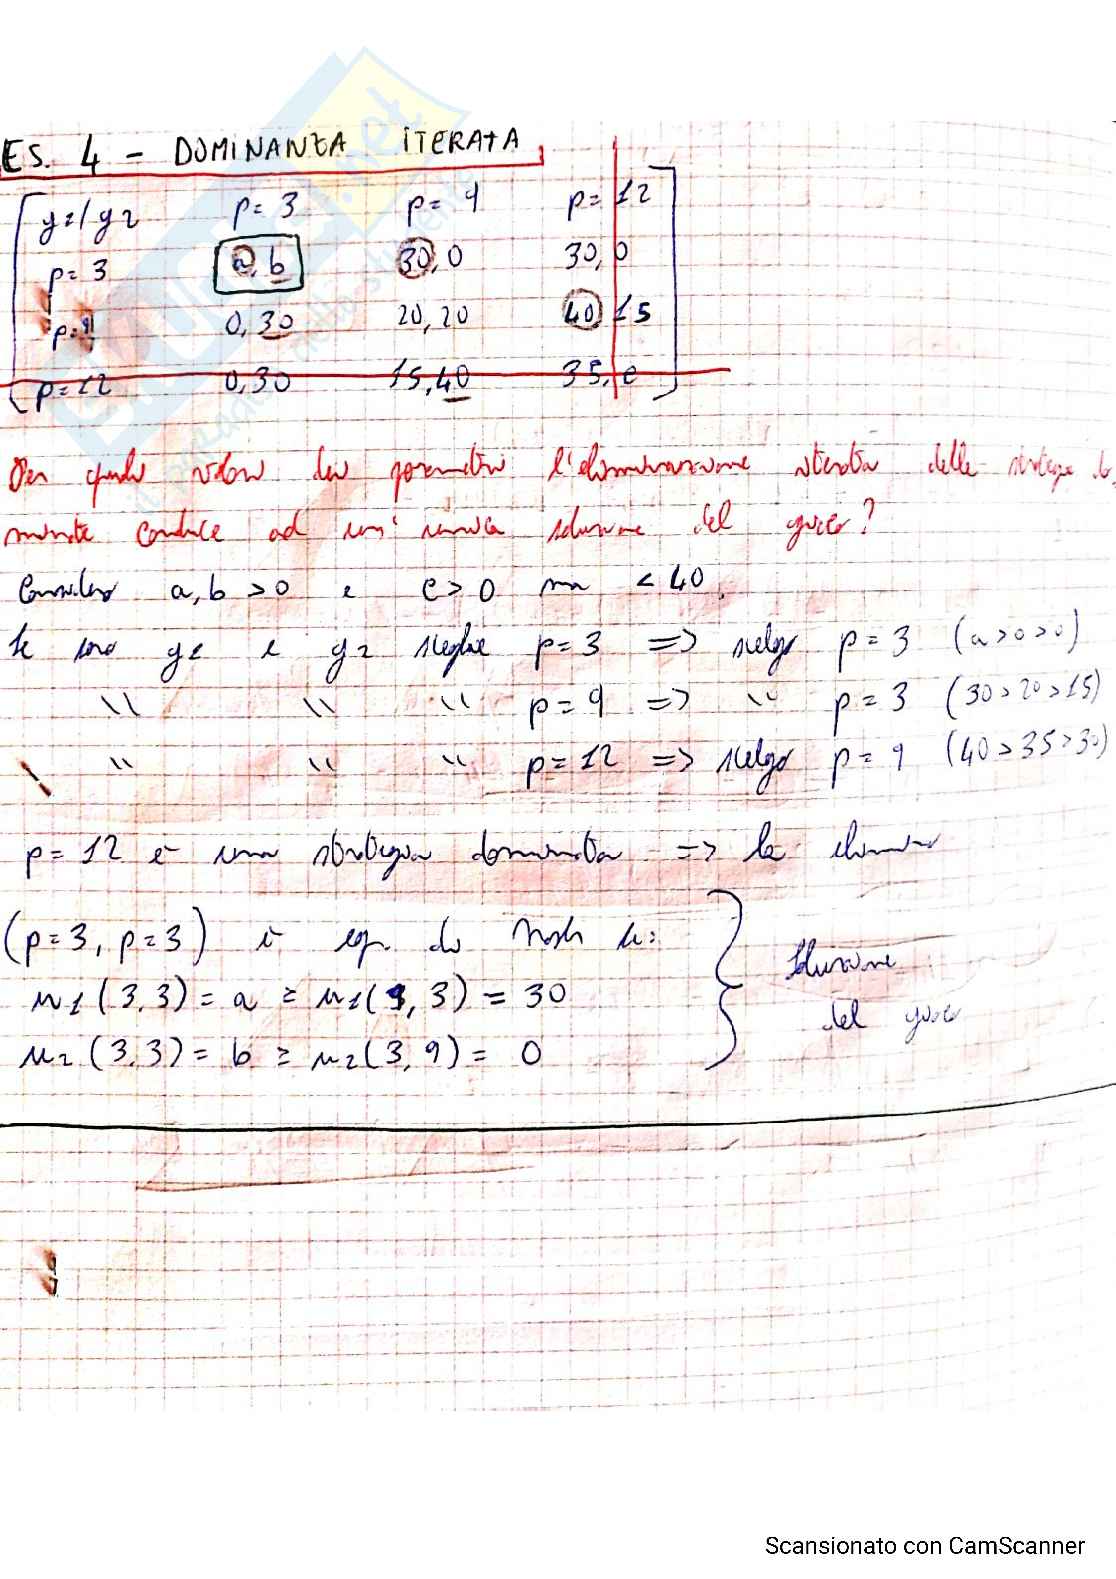 ES. 4 - DOMINANZA ITERATA
g1/g2 p=3 p=9 p=12
p=3 a,b 30,0 30,0
p=9 0,30 20,20 40,15
p=12 0,30 15,40 35,c
Per quale valore dei parametri l'eliminazione iterata delle strategie do
minate conduce ad un' unica soluzione del gioco?
Considero a,b >0 e c>0 ma <40.
Se sono g1 e g2 sceglie p=3 => scelgo p=3 (a>0>0)
" " " p=9 => " p=3 (30>20>15)
" " " p=12 => scelgo p=9 (40>35>30)
p=12 è una strategia dominata => la elimino
(p=3, p=3) è eq. di Nash se:
u1(3,3) = a ≥ u1(9,3) = 30
u2(3,3) = b ≥ u2(3,9) = 0
soluzione
del gioco
Scansionato con CamScanner